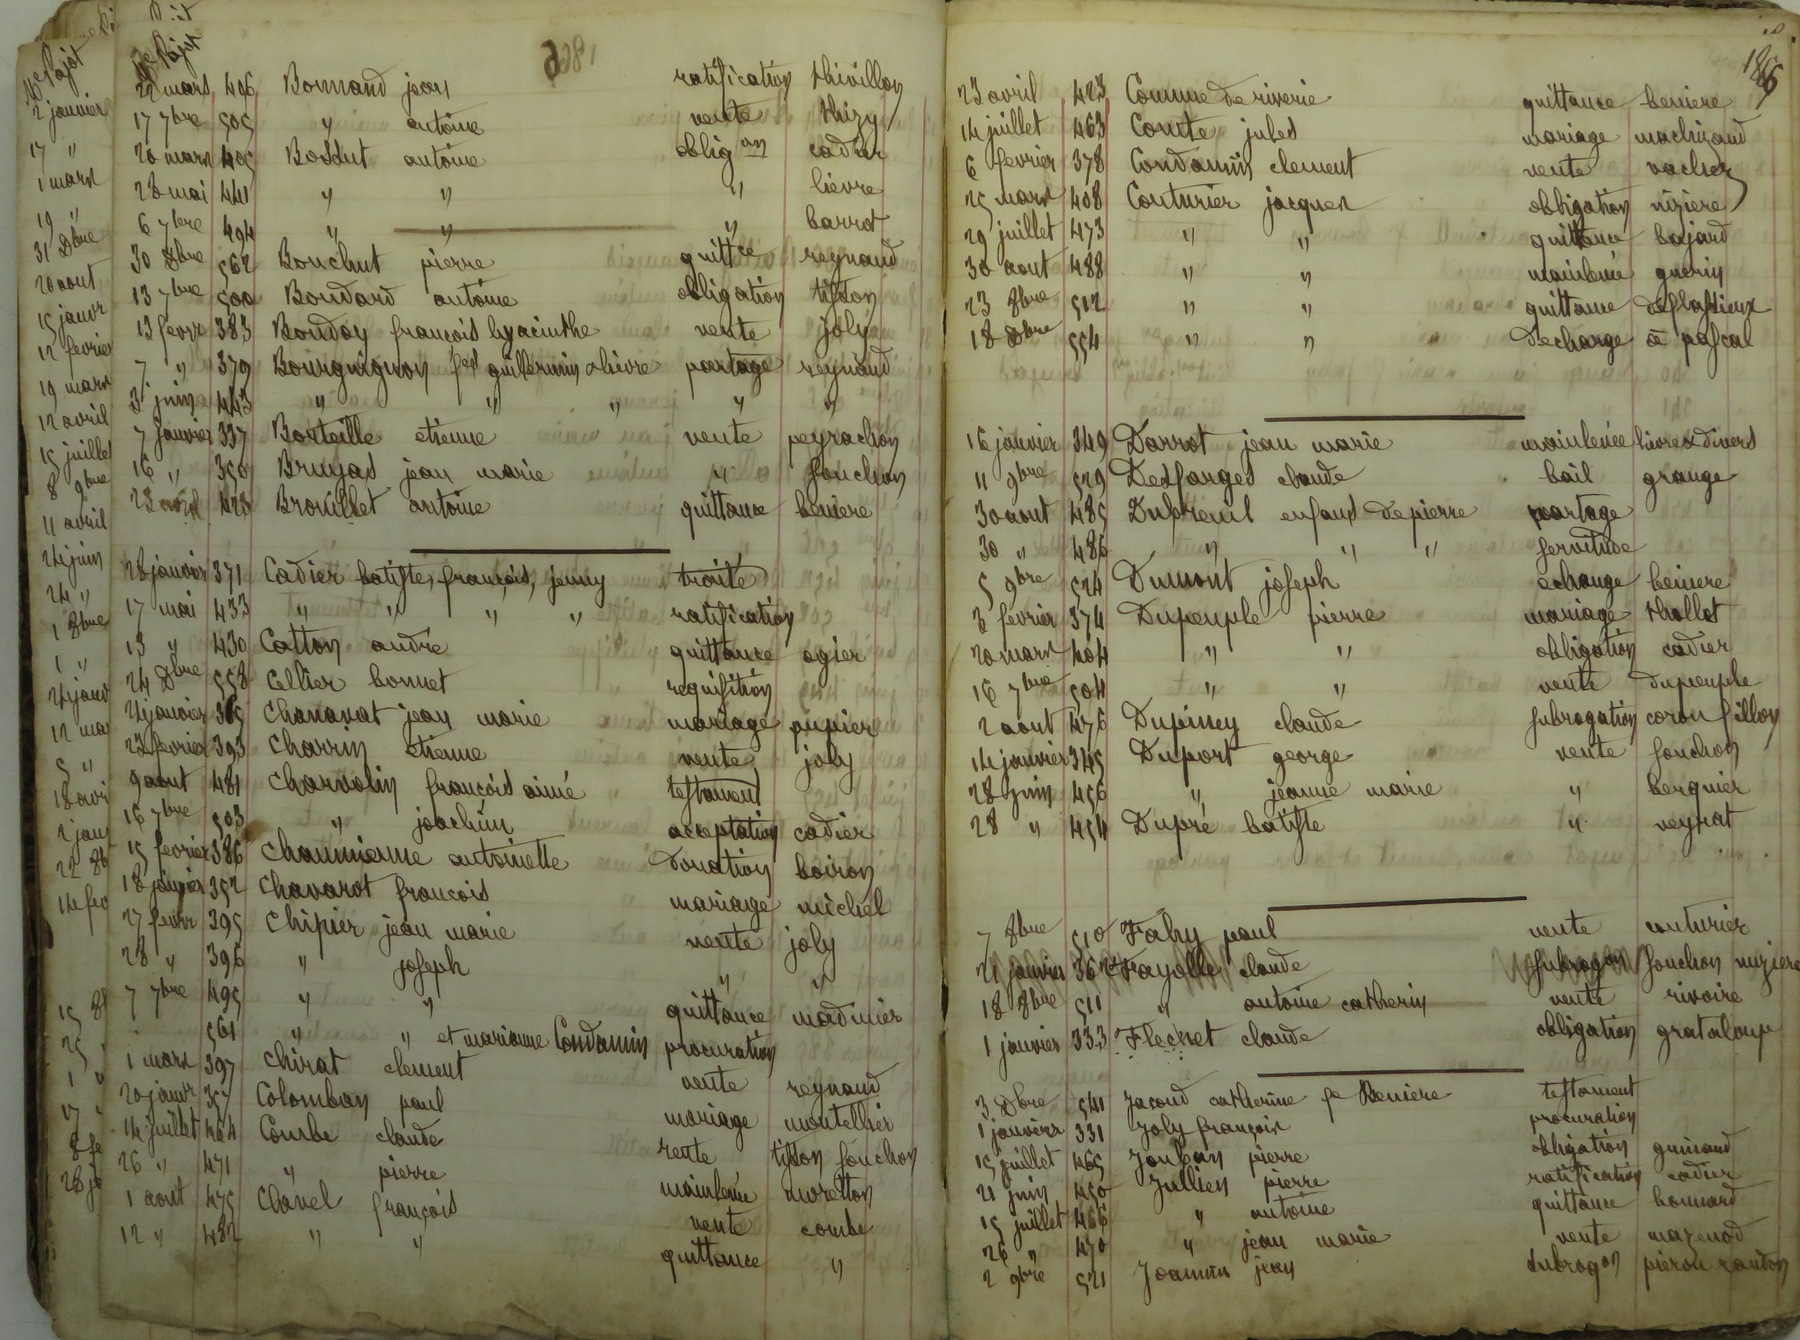 1866
22 mars 406 Bonnand jean ratification thivillon
17 7bre 505 " antoine vente thizy
20 mars 405 Bossut antoine oblig on cadier
28 mai 441 " " " lievre
6 7bre 494 " " " barrot
30 Dbre 562 Bouchut pierre quittce reynaud
13 7bre 500 Boudard antoine obligation tisson
13 fevr 383 Bouday françois hyacinthe vente joly
7 " 379 Bourguignon guillermin & lievre partage reynaud
3 juin 443 " " " " "
7 janvier 337 Bouteille etienne vente peyrachon
16 " 350 Brujas jean marie " fonchon
23 avril 423 Brouillet antoine quittance beniere
28 janvier 371 Cadier batiste, françois, jenny traité
17 mai 433 " " " " ratification
13 " 430 Catton andré quittance ogier
24 Dbre 558 Cellier bonnet requisition
24 janvier 365 Chanavat jean marie mariage pupier
23 fevrier 393 Charrin etienne vente joly
9 aout 481 Charvolin françois aimé testament
16 7bre 503 " joachim acceptation cadier
15 fevrier 386 Chaumienne antoinette donation boiron
18 janvier 352 Chavarot françois mariage michel
27 fevr 395 Chipier jean marie vente joly
28 " 396 " joseph " "
7 7bre 495 " " quittance madinier
561 " " et marianne Condamin procuration
1 mars 397 Chirat clement vente reynaud
20 janvr 357 Colomban paul mariage montellier
14 juillet 464 Combe claude vente tisson fonchon
26 " 471 " pierre mainlevée moretton
1 aout 475 Clavel françois vente combe
12 " 482 " " quittance "
1866
23 avril 423 Commune de riverie quittance beniere
14 juillet 463 Comte jules mariage machizaud
6 fevrier 378 Condamin clement vente vacher
25 mars 408 Couturier jacques obligation niziere
29 juillet 473 " " quittance bajard
30 aout 488 " " mainlevée guerin
23 8bre 512 " " quittance deflassieux
18 Dbre 554 " " decharge pascal
16 janvier 349 Darrot jean marie mainlevée lievre & divers
11 9bre 529 Desfarges claude bail grange
30 aout 485 Dubreuil enfans de pierre partage
30 " 486 " " " servitude
5 9bre 524 Dumont joseph echange beniere
3 fevrier 374 Dupeuple pierre mariage thollot
20 mars 404 " " obligation cadier
16 7bre 504 " " vente dupeuple
2 aout 476 Dupiney claude subrogation coron fillon
14 janvier 345 Duport george vente fonchon
28 juin 456 " jeanne marie " berquier
28 " 454 Dupré batiste " veyrat
7 8bre 510 Fahy paul vente couturier
21 janvier 362 Fayolle claude subrogon fonchon niziere
18 8bre 511 " antoine catherin vente rivoire
1 janvier 333 Flechet claude obligation grataloup
3 Dbre 541 Jacoud catherine fe Beniere testament
1 janvier 331 Joly françois procuration
15 juillet 465 Jouban pierre obligation guinand
21 juin 450 Jullien pierre ratification cadier
15 juillet 466 " antoine quittance bonnard
26 " 470 " jean marie vente mazenod
2 9bre 521 Joannin jean subrogon